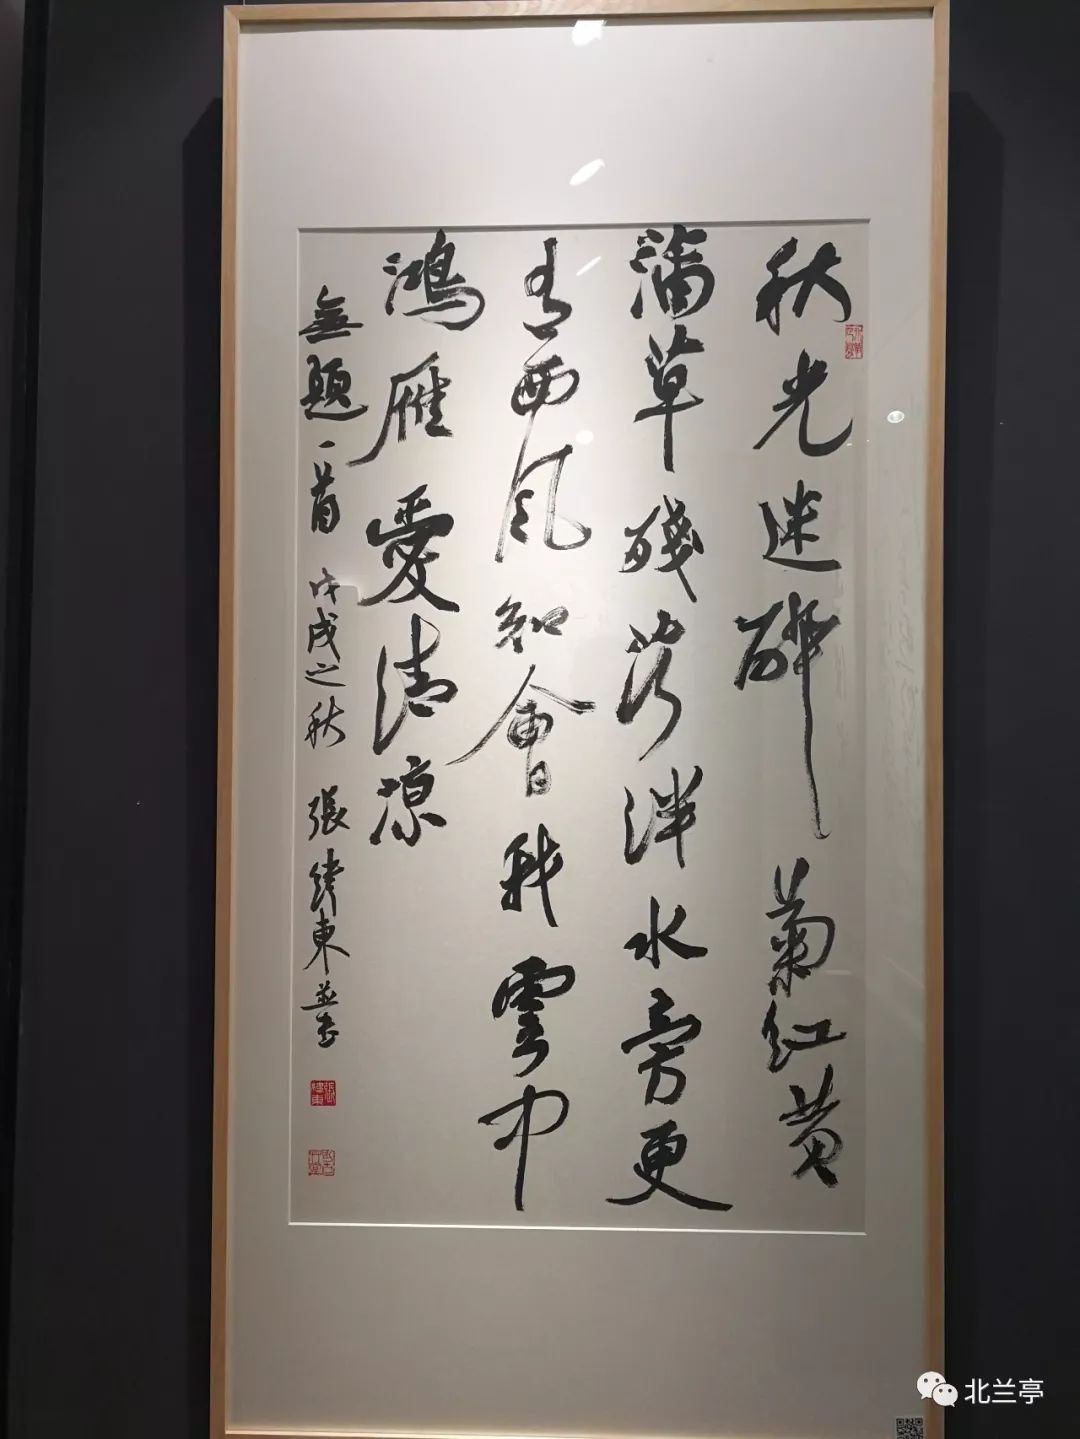 秋光迷醉菊红黄
蒲草殘荷泮水旁更
有西风知會我雲中
鴻雁愛清凉
無題一首 戊戌之秋 張緯東並书
北兰亭